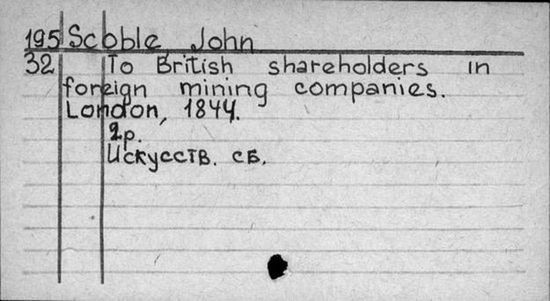 195 Scoble, John
32 To British shareholders in
foreign mining companies.
London, 1844.
2p.
Искусств. сб.